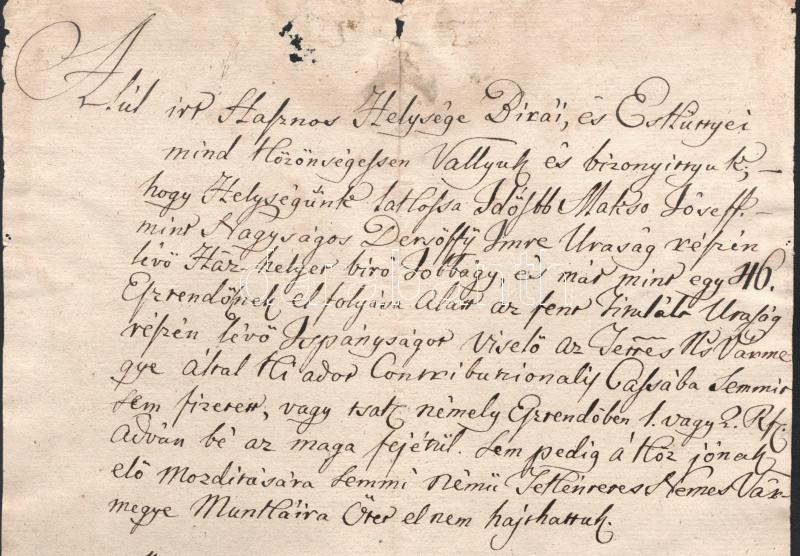 Alúl irt Hasznos Helysége Birái, és Esküttyei
mind közönségessen Vallyuk és bizonyittyuk,
hogy Helységünk lakossa Idősbb Makso Joseff
mint Nagyságos Dersöffÿ Imre Uraság részén
lévö Ház helyet biró Jobbagy, és már mint egy 46.
Esztendőnek el folyása Alatt az fent titulált Uraság
részén lévö Ispányságot viselö az Tettes Ns Várme
gye által Ki adot Contributionalis Cassába semmit
sem fizetett, vagy tsak némely Esztendőben 1. vagy 2. Rf.
Adván bé az maga fejétül. Sem pedig á Köz jónak
elö mozditására semmi némü Tekéntetes Nemes Vár-
megye Munkáira Ötet el nem hajthattuk.